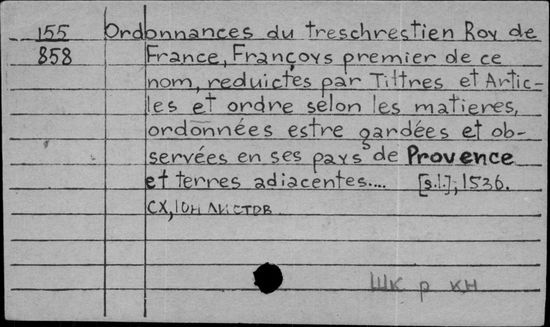 155 Ordonnances du treschrestien Roy de
858 France, Françoys premier de ce
nom, reduictes par Tiltres et Artic-
les et ordre selon les matieres,
ordonnées estre gardées et ob-
servées en ses pays de Provence
et terres adiacentes.... [s.l.]; 1536.
CX, 10н листов
ШК р кн